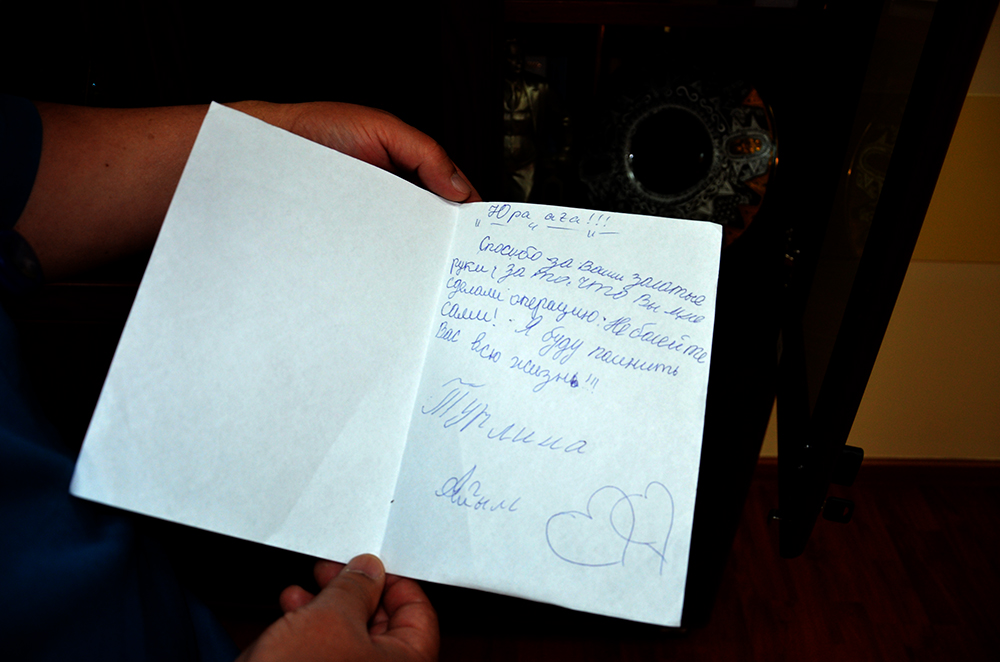 Юра аға!!!
Спосибо за Ваши залатые
руки, за то, что Вы мне
сделали операцию. Не болейте
сами! Я буду помнить
Вас всю жизнь!!!
Турлина
Айым